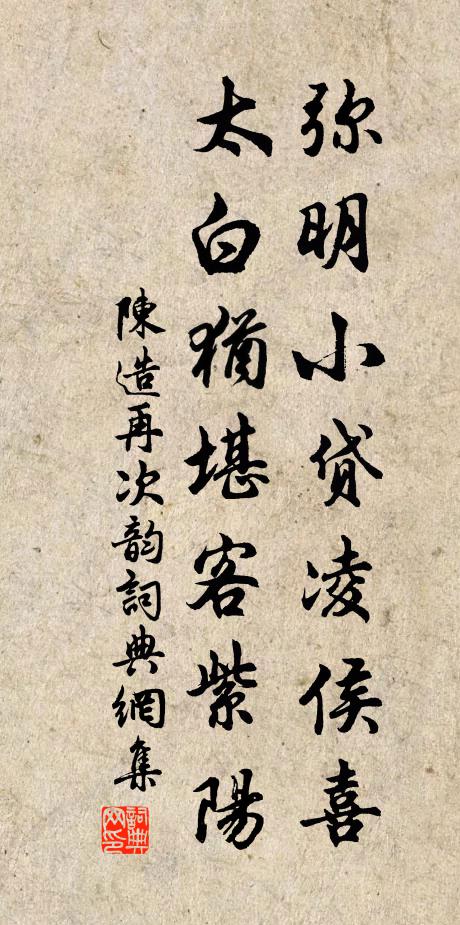 弥明小贷凌侯喜
太白猶堪客紫陽
陳造再次韵詞典網集
詞典网印